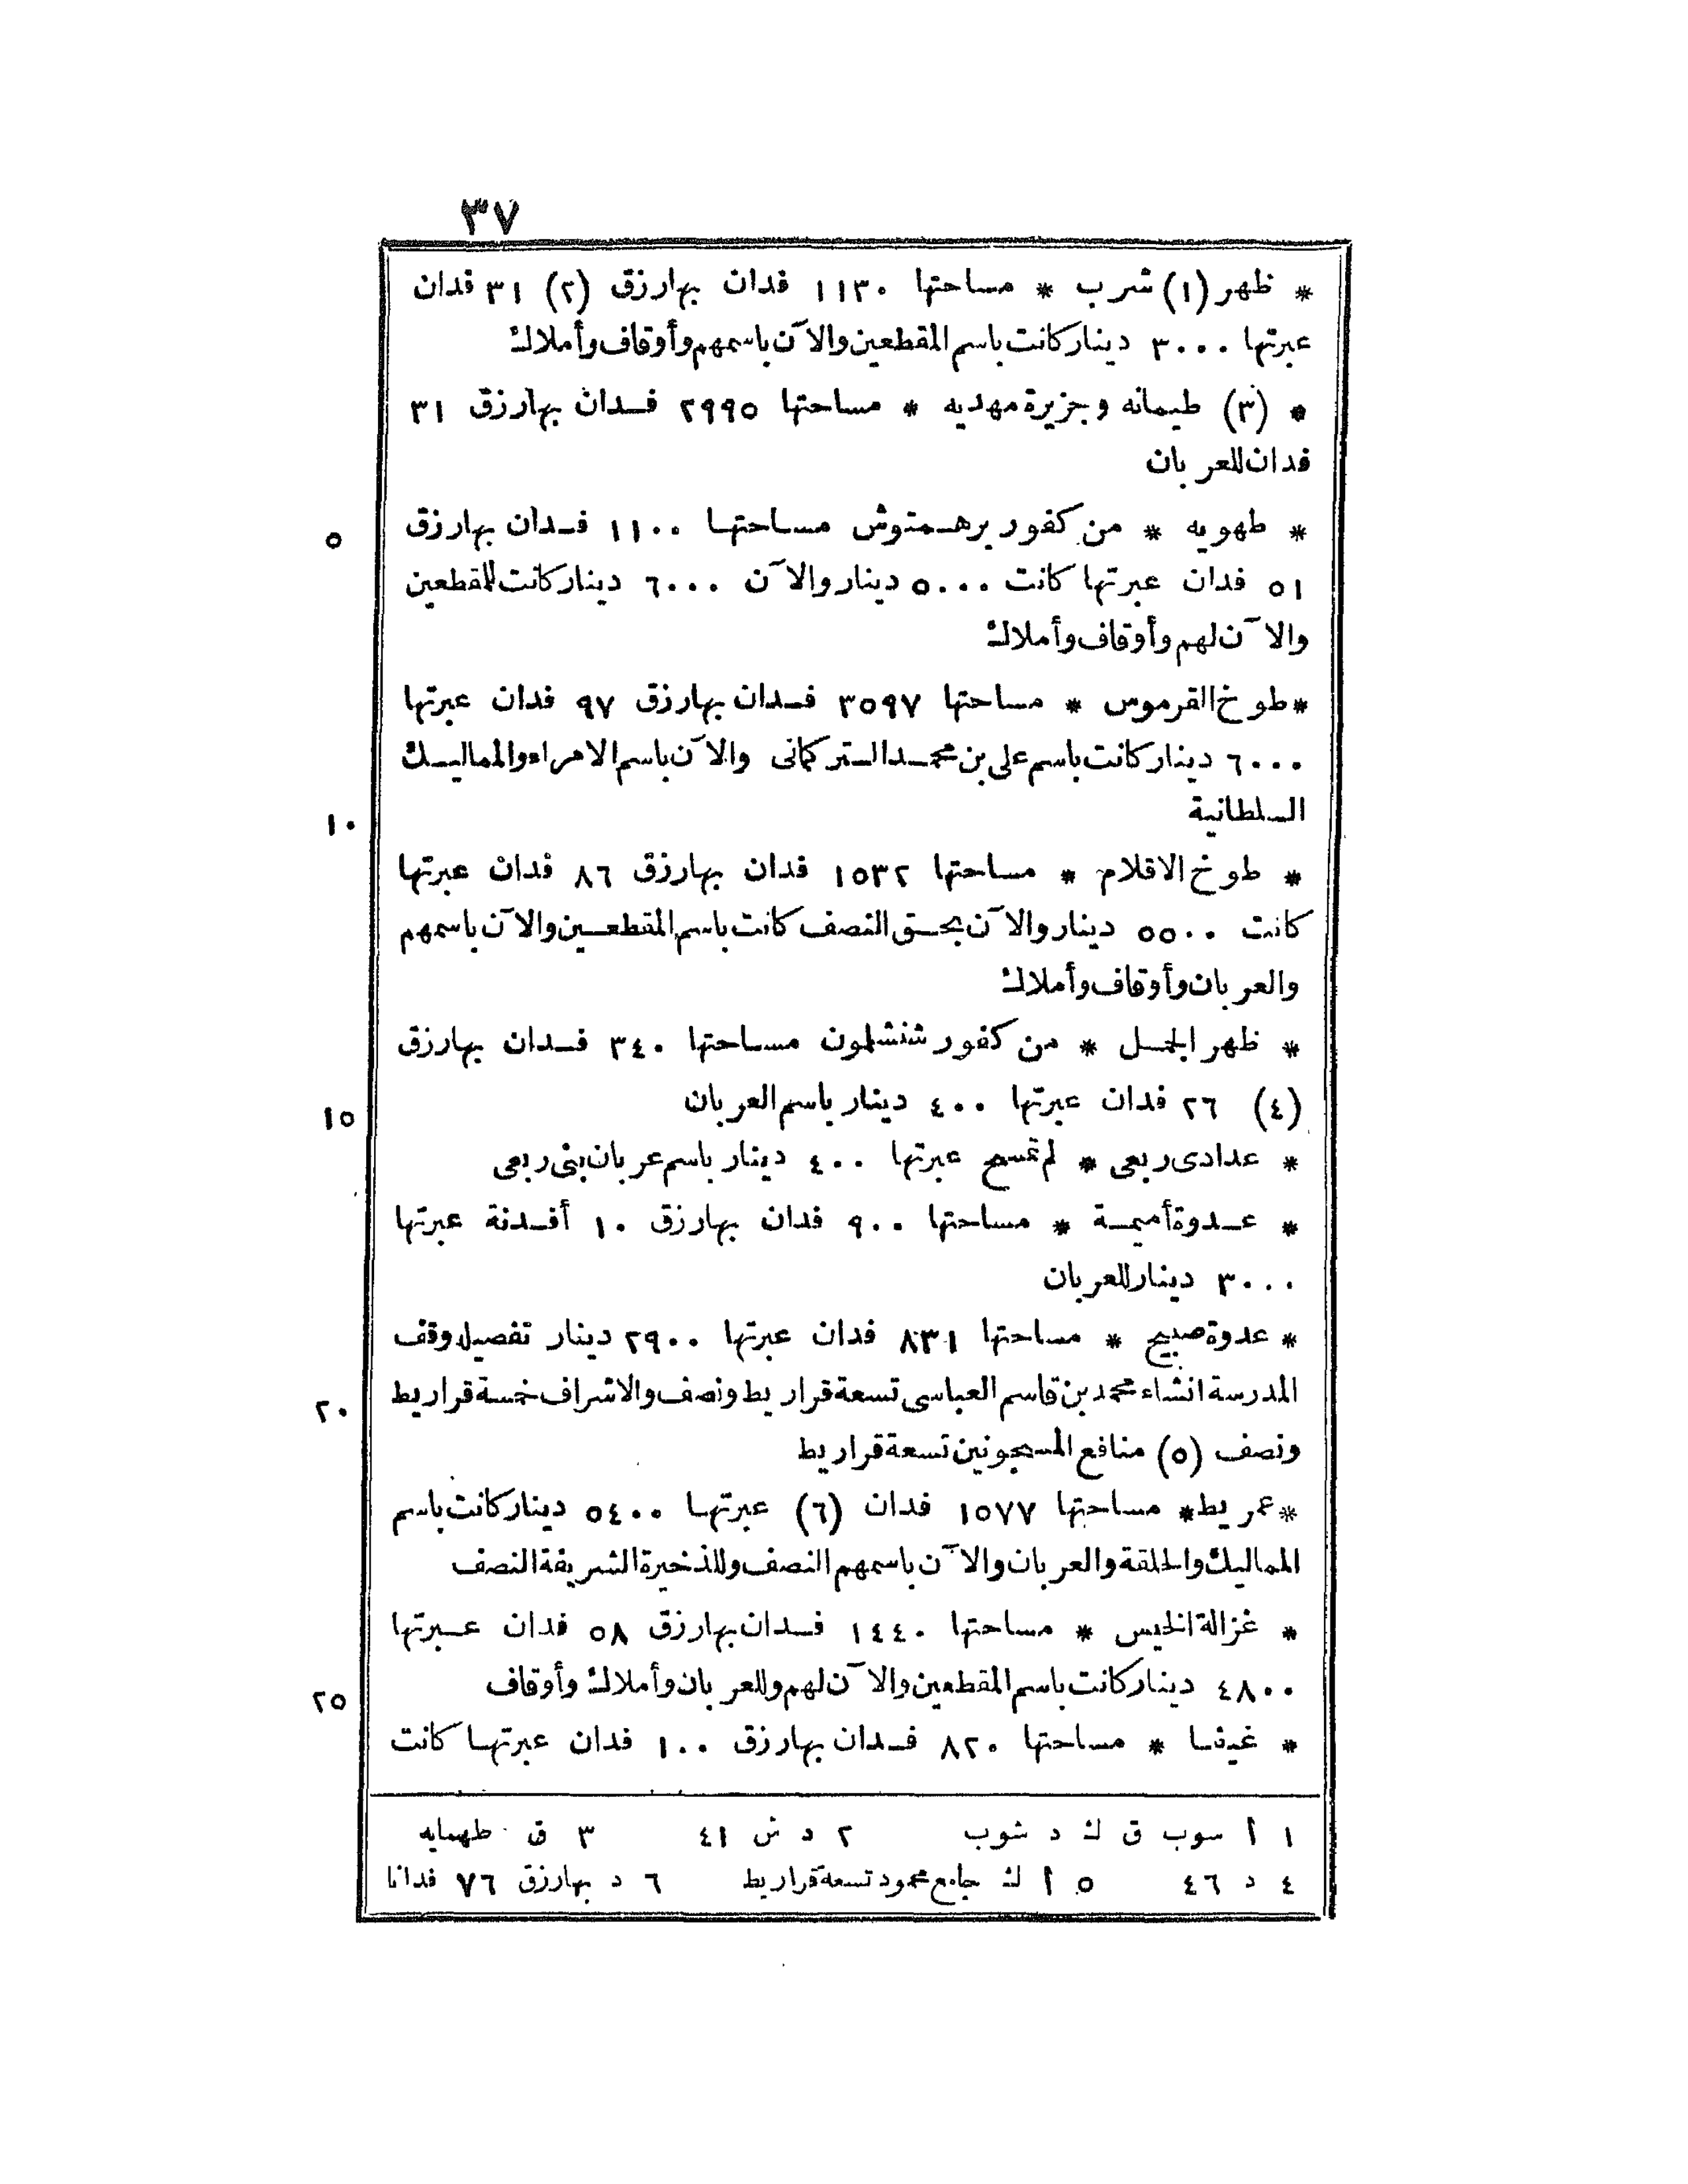 ٣٧
* ظهر (١) شرب * مساحتها ١١٣٠ فدان بهارزق (٢) ٣١ فدان
عبرتها ٣٠٠٠ دينار كانت باسم المقطعين والآن باسمهم وأوقاف وأملاك
* (٣) طيمانه وجزيرة مهديه * مساحتها ٢٩٩٥ فدان بهارزق ٣١
فدان للعربان
* طهويه * من كفور برهمتوش مساحتها ١١٠٠ فدان بهارزق
٥
٥١ فدان عبرتها كانت ٥٠٠٠ دينار والآن ٦٠٠٠ دينار كانت للمقطعين
والآن لهم وأوقاف وأملاك
* طوخ القرموس * مساحتها ٣٥٩٧ فدان بهارزق ٩٧ فدان عبرتها
٦٠٠٠ دينار كانت باسم على بن محمد التركمانى والآن باسم الامراء والمماليك
السلطانية
١٠
* طوخ الاقلام * مساحتها ١٥٣٢ فدان بهارزق ٨٦ فدان عبرتها
كانت ٥٥٠٠ دينار والآن بحق النصف كانت باسم المقطعين والآن باسمهم
والعربان وأوقاف وأملاك
* ظهر الجمل * من كفور شنشلمون مساحتها ٣٤٠ فدان بهارزق
(٤) ٢٦ فدان عبرتها ٤٠٠ دينار باسم العربان
١٥
* عدادى ربعى * لم تمسح عبرتها ٤٠٠ دينار باسم عربان بنى ربعى
* عدوة أميمة * مساحتها ٩٠٠ فدان بهارزق ١٠ أفدنة عبرتها
٣٠٠٠ دينار للعربان
* عدوة صبيح * مساحتها ٨٣١ فدان عبرتها ٢٩٠٠ دينار تفصيل وقف
المدرسة انشاء محمد بن قاسم العباسى تسعة قراريط ونصف والاشراف خمسة قراريط
٢٠
ونصف (٥) منافع المسجونين تسعة قراريط
* عمريط * مساحتها ١٥٧٧ فدان (٦) عبرتها ٥٤٠٠ دينار كانت باسم
المماليك والحلقة والعربان والآن باسمهم النصف وللذخيرة الشريفة النصف
* غزالة الخيس * مساحتها ١٤٤٠ فدان بهارزق ٥٨ فدان عبرتها
٤٨٠٠ دينار كانت باسم المقطعين والآن لهم وللعربان وأملاك وأوقاف
٢٥
* غيثا * مساحتها ٨٢٠ فدان بهارزق ١٠٠ فدان عبرتها كانت
١ أ سوب ق ك د شوب ٢ د ش ٤١ ٣ ق طهمايه
٤ د ٤٦ ٥ أ ك جامع محمود تسعة قراريط ٦ د بهارزق ٧٦ فدانا